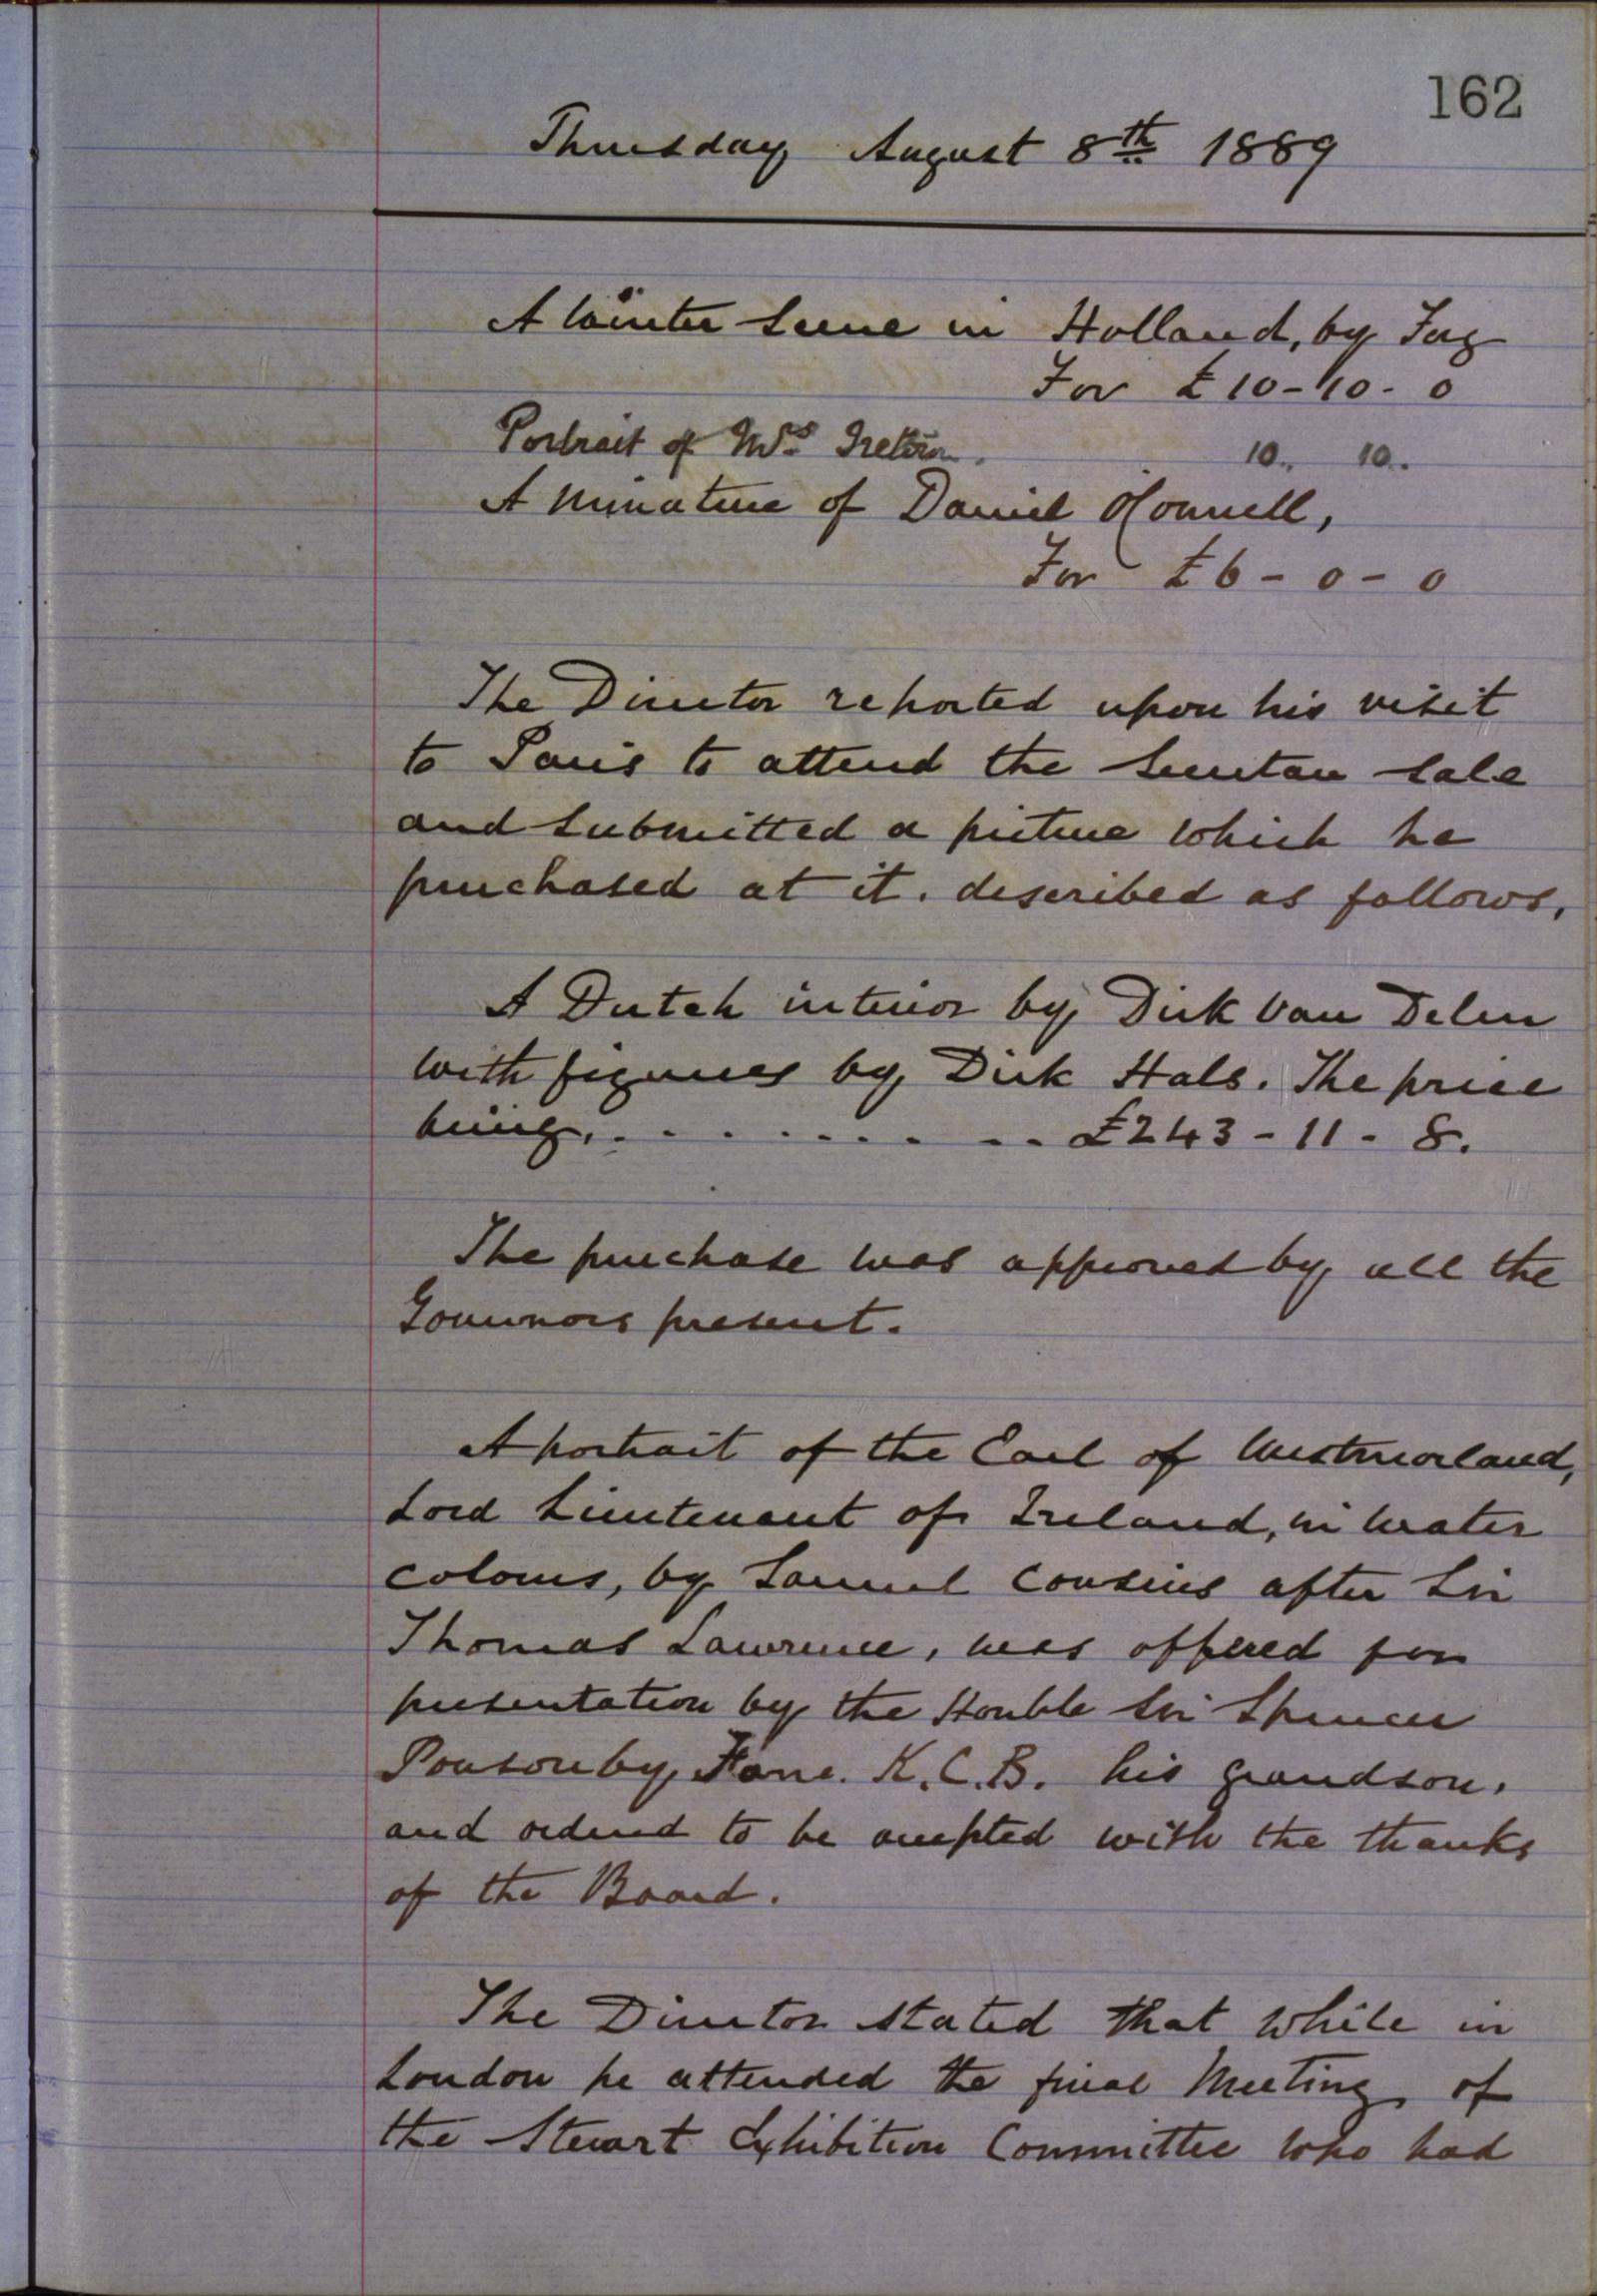 162
Thursday August 8th 1889
A Winter Scene in Holland, by
For £10-10-0
Portrait of Mrs Ireton. 10. 10.
A Miniature of Daniel O'Connell,
For £6-0-0
The Director reported upon his visit
to Paris to attend the Secretan Sale
and submitted a picture which he
purchased at it. described as follows,
A Dutch interior by Dirk Van Delen
with figures by Dirk Hals. The price
being, . . . . . . . . . £243-11-8.
The purchase was approved by all the
Governors present.
A portrait of the Earl of Westmorland,
Lord Lieutenant of Ireland, in water
colours, by Samuel Cousins after Sir
Thomas Lawrence, was offered for
presentation by the Honble Sir Spencer
Ponsonby Fane. K.C.B. his grandson,
and ordered to be accepted with the thanks
of the Board.
The Director stated that while in
London he attended the final Meeting of
the Stewart Exhibition Committee who had